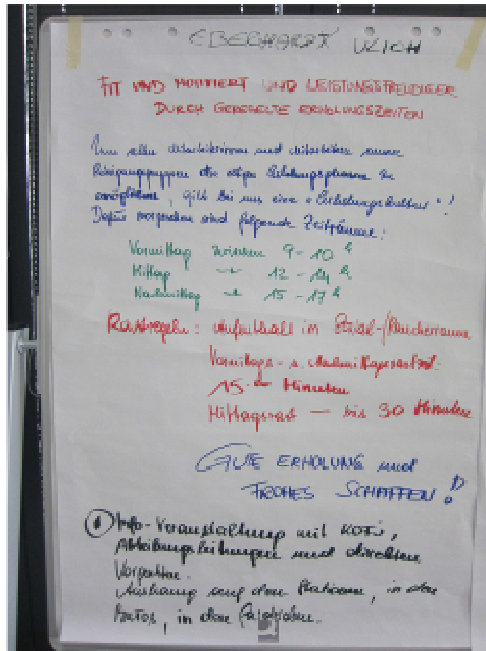 EBERHARDT ULICH
FIT UND MOTIVIERT UND LEISTUNGSFREUDIGER
DURCH GEREGELTE ERHOLUNGSZEITEN
Um allen Mitarbeiterinnen und Mitarbeitern unserer
Reinigungsgruppen die Erholungsphasen zu
ermöglichen, gilt bei uns eine "Erholungskultur"!
Dafür vorgesehen sind folgende Zeiträume:
Vormittag zwischen 9 - 10 h
Mittag -"- 12 - 14 h
Nachmittag -"- 15 - 17 h
Rastregeln: Aufenthalt im Sozial-/Raucherraum
Vormittags- u. Nachmittagsrast
15 Minuten
Mittagsrast — bis 30 Minuten
GUTE ERHOLUNG und
FROHES SCHAFFEN!
Info-Veranstaltung mit
Abteilungsleitungen und direkten
Vorgesetzten.
Aushang auf den Stationen, in den
Autos, in den